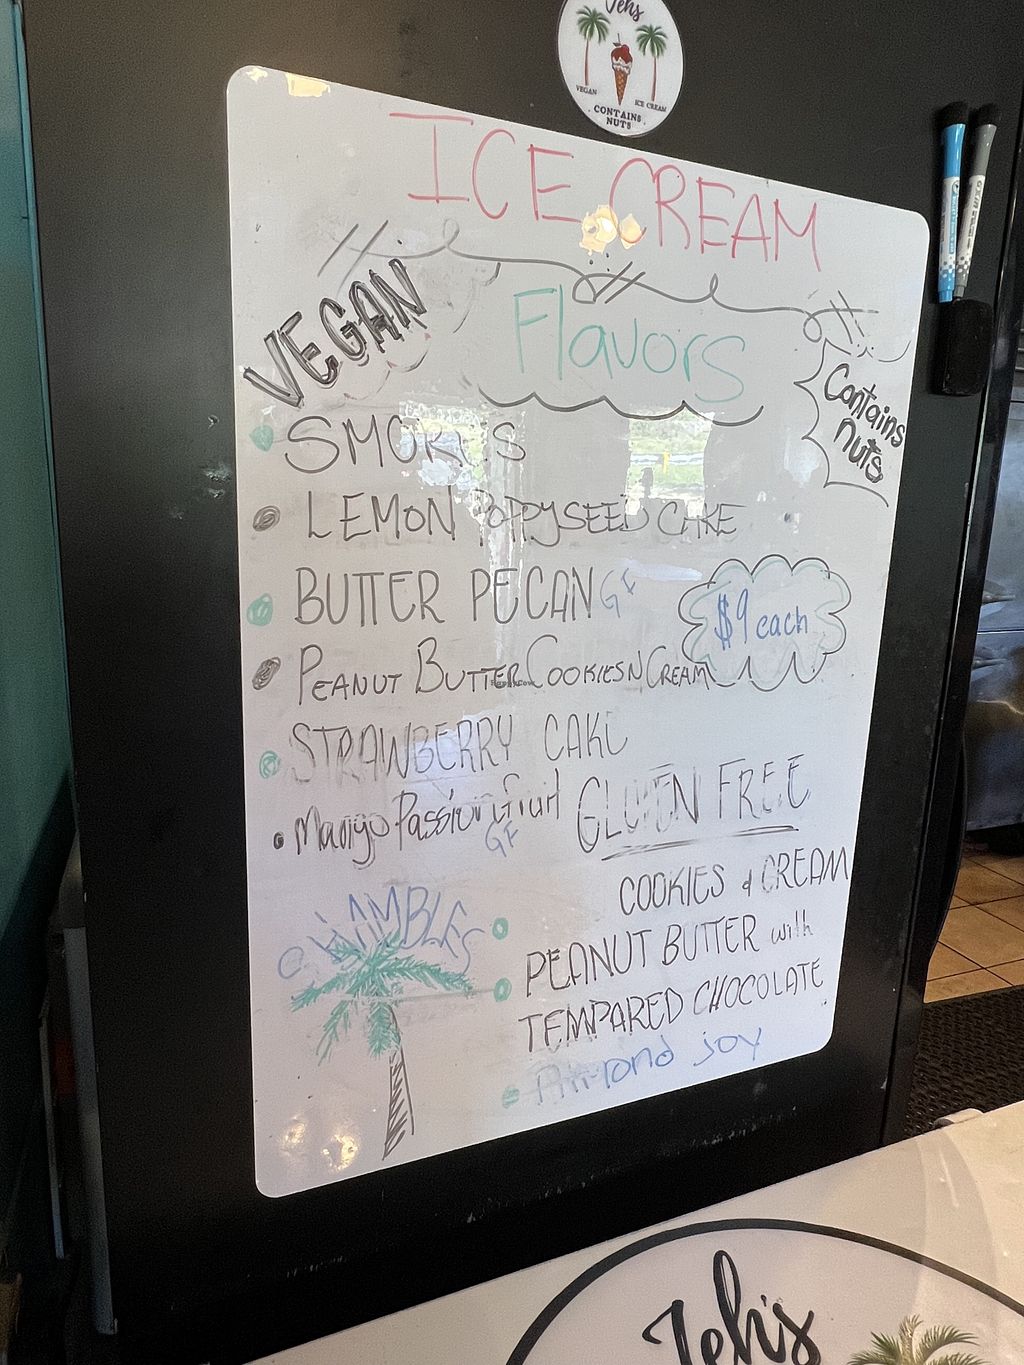 Jeh's
VEGAN ICE CREAM
CONTAINS
NUTS
ICE CREAM
VEGAN
Flavors
Contains
nuts
LEMON POPPYSEED CAKE
BUTTER PECAN GF
$9 each
PEANUT BUTTER COOKIES N CREAM
STRAWBERRY CAKE
Mango Passion fruit
GF
GLUTEN FREE
COOKIES & CREAM
PEANUT BUTTER with
TEMPARED CHOCOLATE
Almond joy
Jeh's